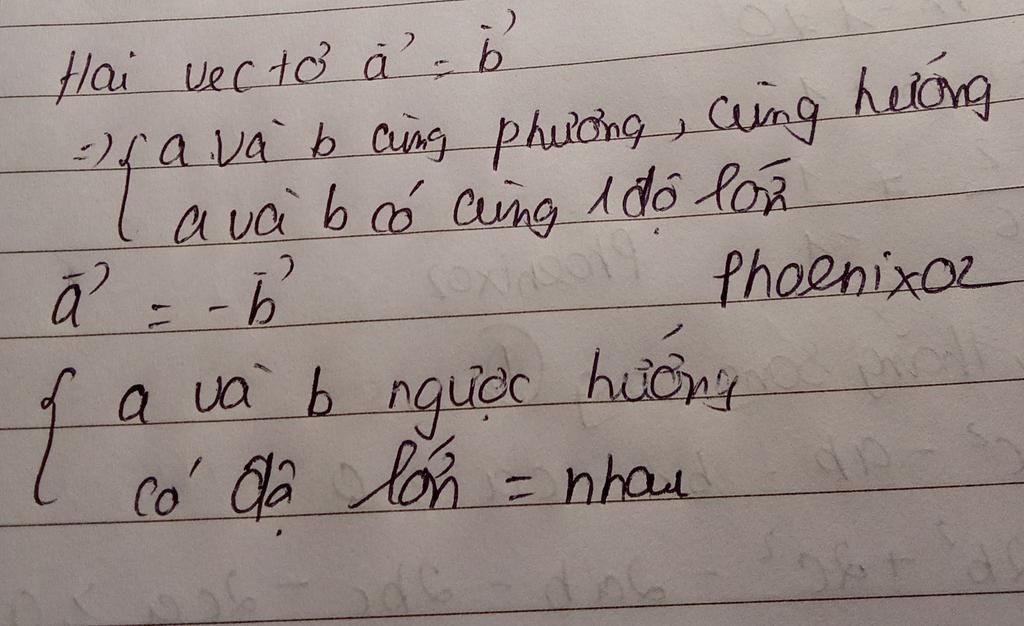 Hai vectơ a⃗ = b⃗
=> { a và b cùng phương, cùng hướng
a và b có cùng 1 độ lớn
a⃗ = -b⃗
Phoenix02
{ a và b ngược hướng
có độ lớn = nhau